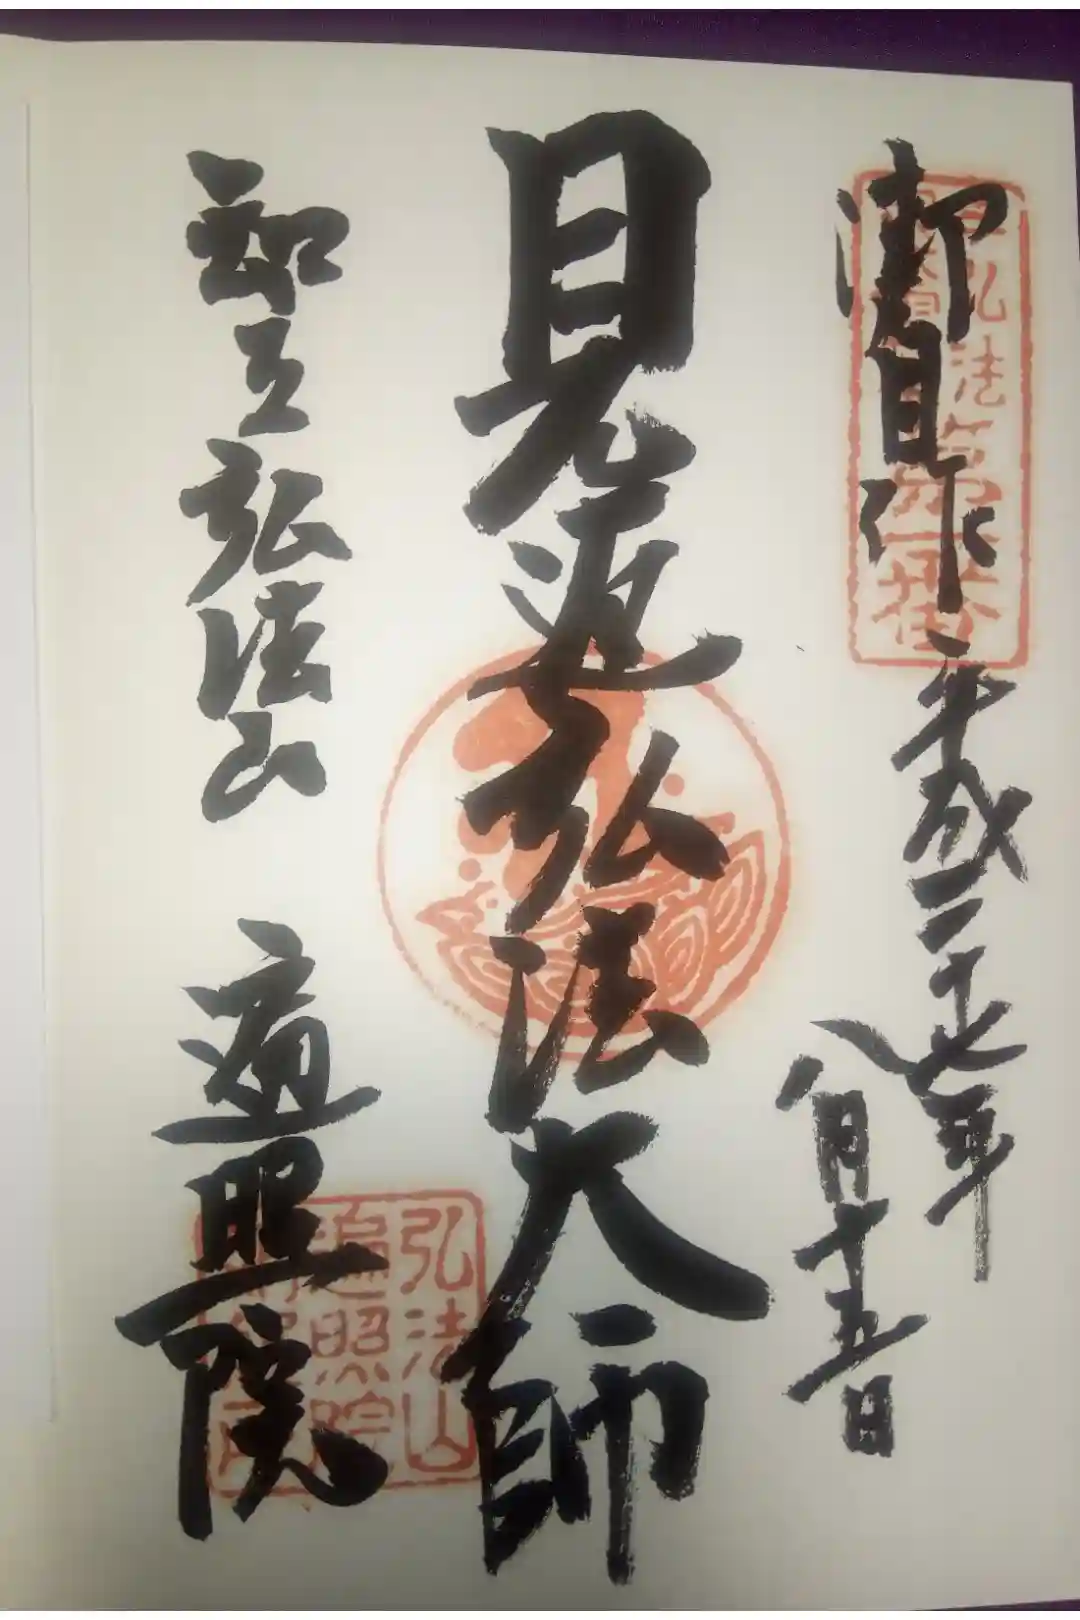 御自作
平成二十七年
八月十五日
見返弘法大師
知立弘法山 遍照院
弘法山
遍照院